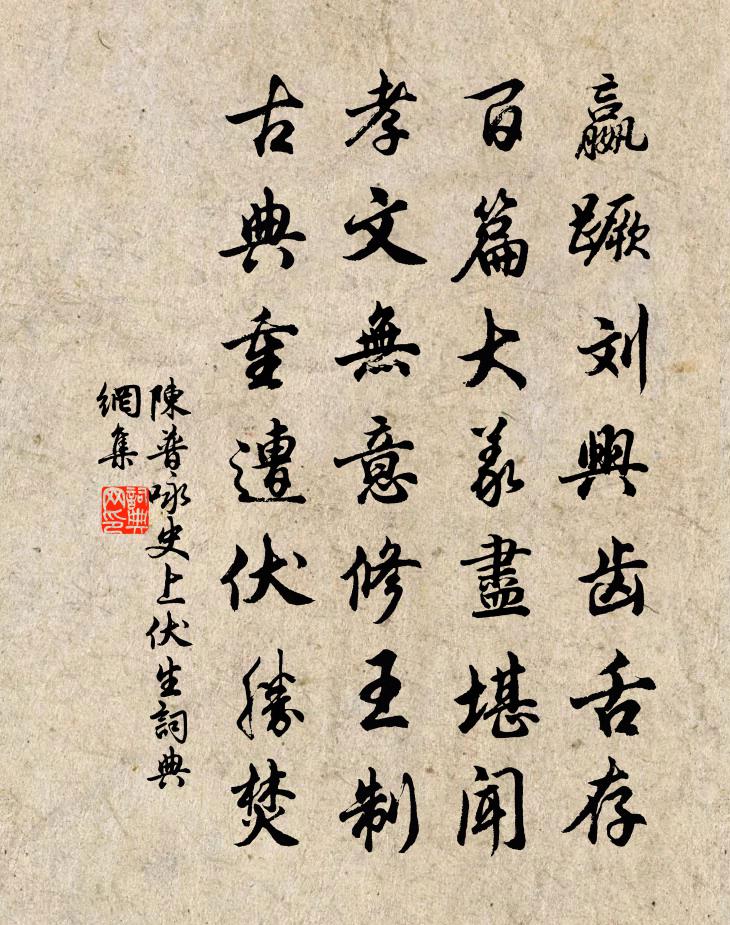 嬴蹶刘興齿舌存
百篇大義盡堪聞
孝文無意修王制
古典重遭伏勝焚
陳普咏史上伏生詞典
網集
詞典网印